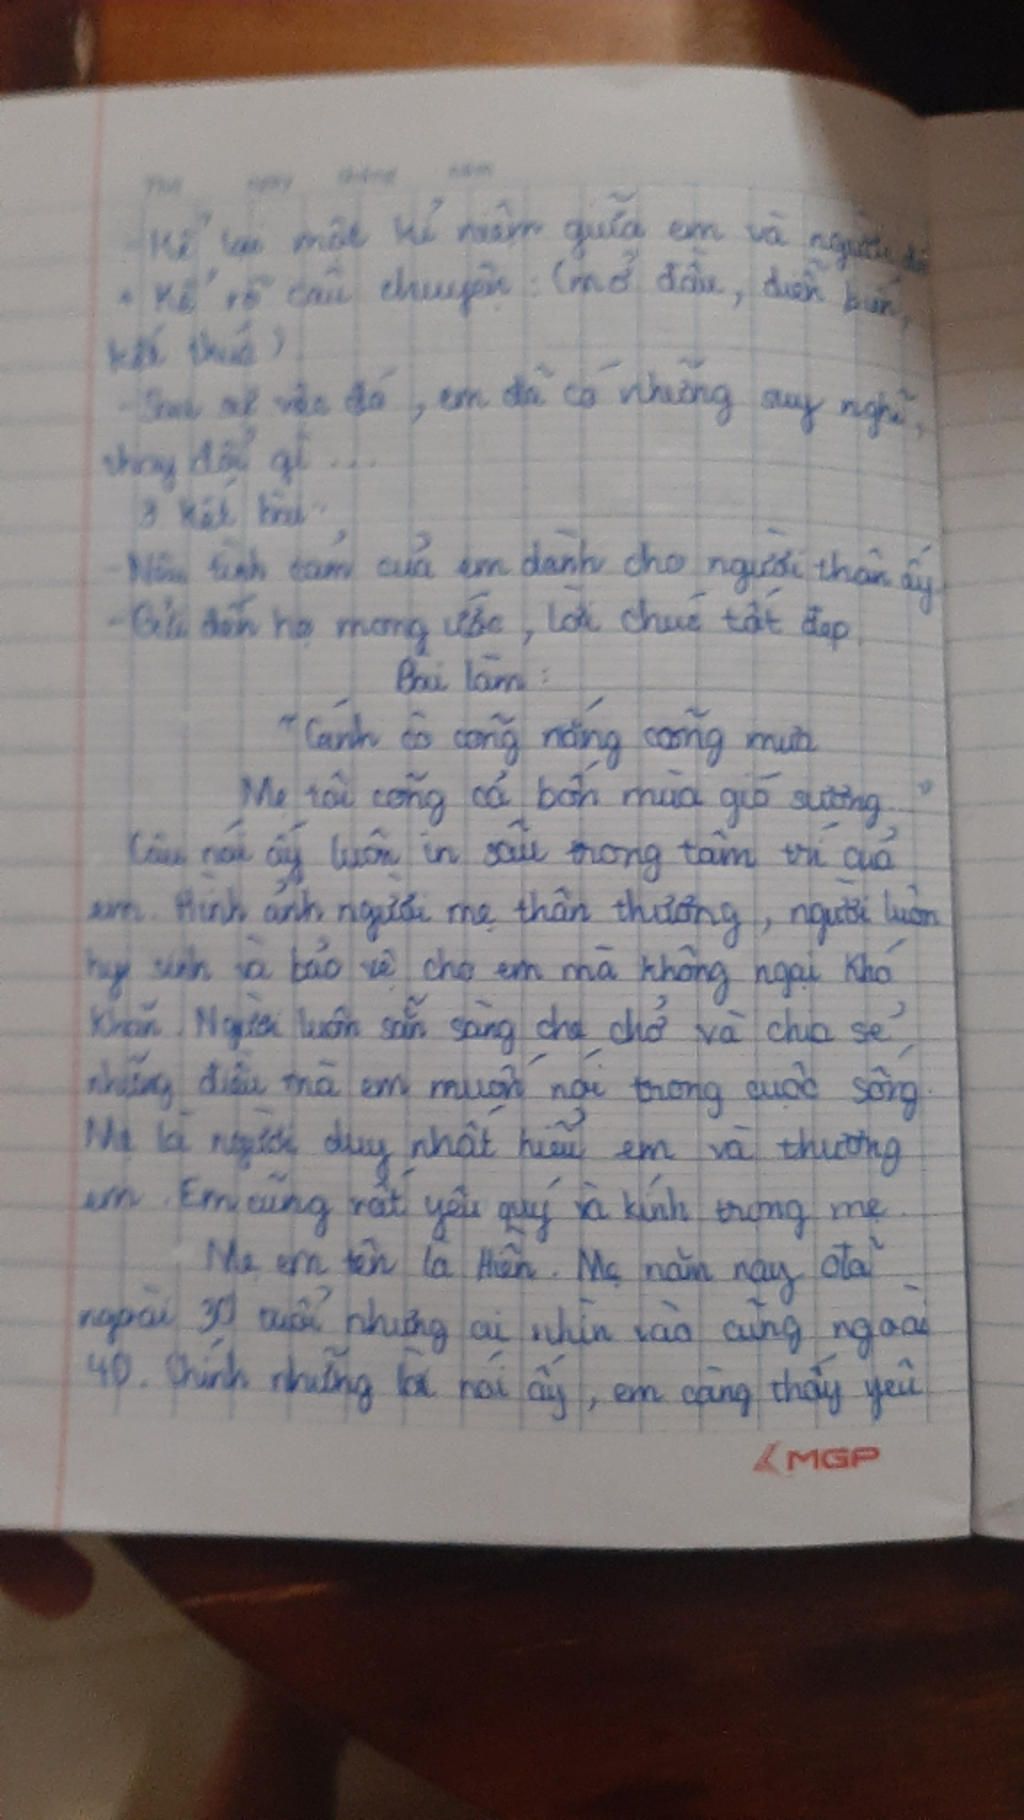 Thứ ngày tháng năm
- Kể lại một kỉ niệm giữa em và người đó
+ Kể rõ câu chuyện : (mở đầu, diễn biến,
kết thúc)
- Sau sự việc đó, em đã có những suy nghĩ,
thay đổi gì ...
3 Kết bài:
- Nêu tình cảm của em dành cho người thân ấy
- Gửi đến họ mong ước, lời chúc tốt đẹp
Bài làm :
"Cánh cò cõng nắng cõng mưa
Mẹ tôi cõng cả bốn mùa gió sương..."
Câu nói ấy luôn in sâu trong tâm trí của
em. Hình ảnh người mẹ thân thương, người luôn
hy sinh và bảo vệ cho em mà không ngại khó
khăn. Người luôn sẵn sàng che chở và chia sẻ
những điều mà em muốn nói trong cuộc sống.
Mẹ là người duy nhất hiểu em và thương
em. Em cũng rất yêu quý và kính trọng mẹ.
Mẹ em tên là Hiền. Mẹ năm nay đã
ngoài 30 tuổi nhưng ai nhìn vào cũng ngoài
40. Chính những lời nói ấy, em càng thấy yêu
MGP